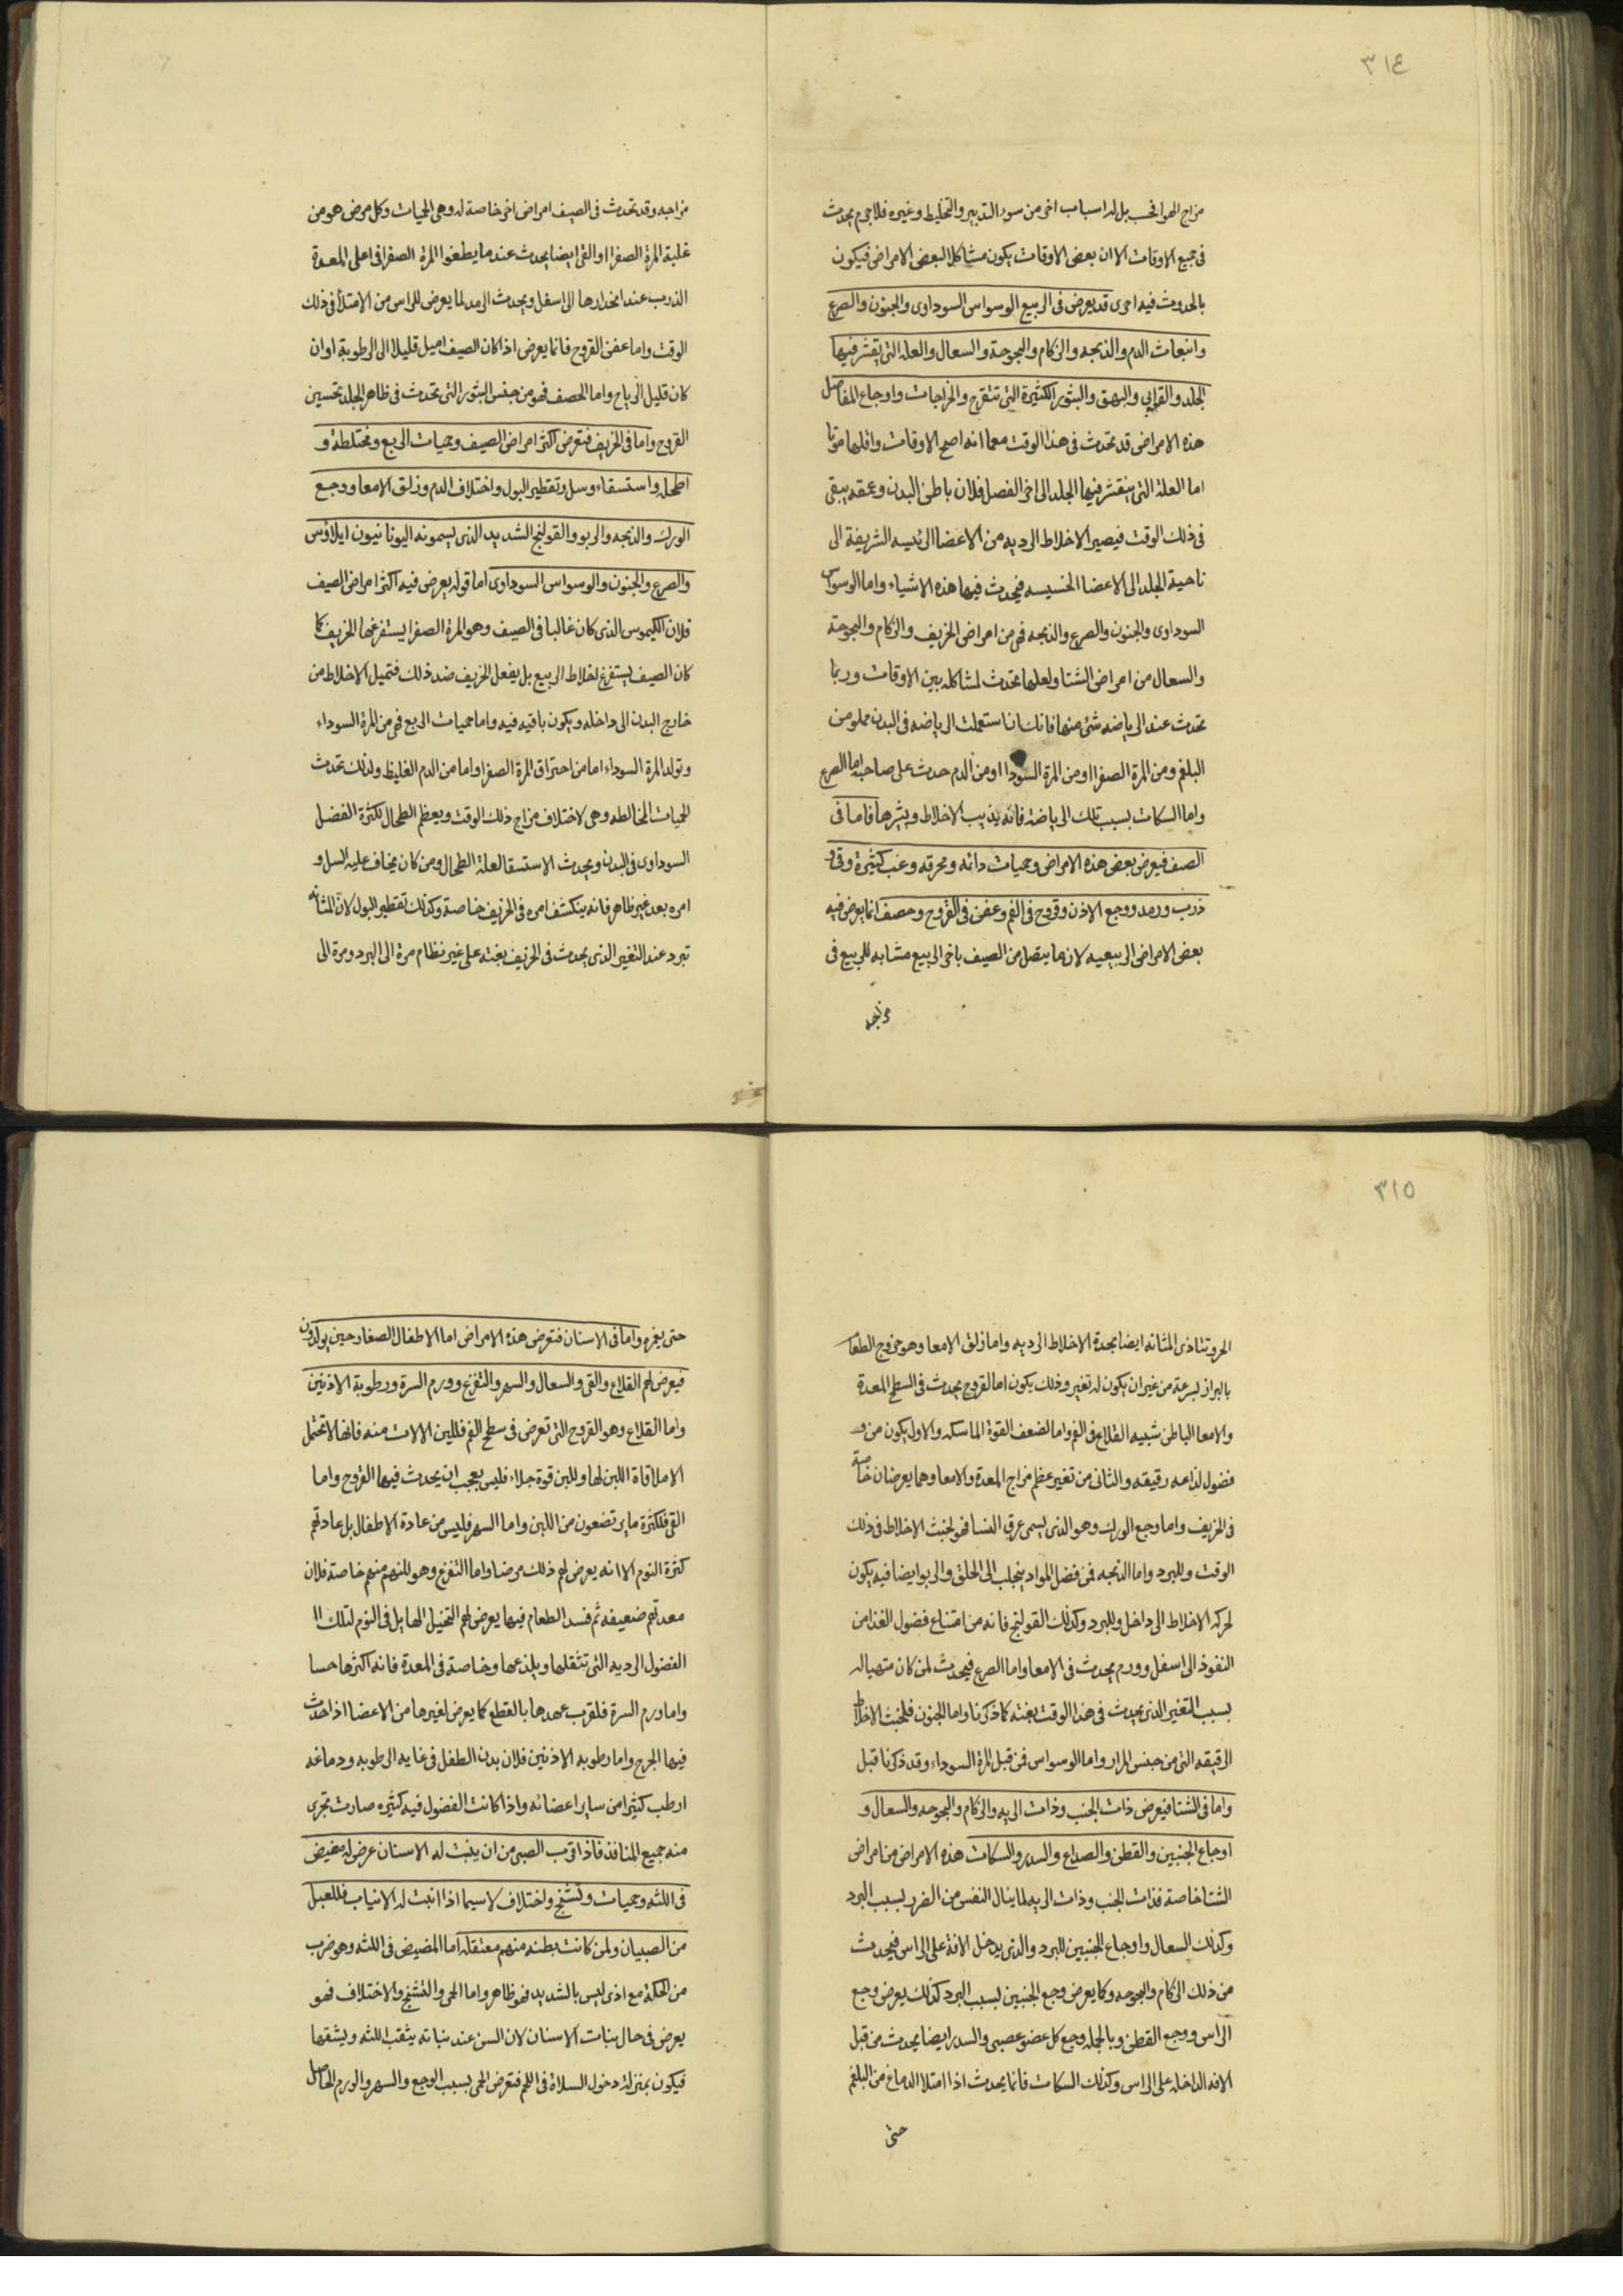 ٣١٤
مزاج الهوا فحسب بل له اسباب اخر من سوء التدبير والتخليط وغيره فلا جرم يحدث
فى جميع الاوقات الا ان بعض الاوقات يكون مشاكلا لبعض الامراض فيكون
بالحدوث فيه احرى قد يعرض فى الربيع الوسواس السوداوى والجنون والصرع
وانبعاث الدم والذبحه والزكام والبحوحة والسعال والعله التى يتقشر فيها
الجلد والقوابى والبهق والبثور الكثيرة التى تتقرح والخراجات واوجاع المفاصل
هذه الامراض قد تحدث فى هذا الوقت مع ما انه اصح الاوقات واقلها موتا
اما العلة التى يتقشر فيها الجلد الى اخر الفصل فلان باطن البدن وعمقه يبقى
فى ذلك الوقت فيصير الاخلاط الرديه من الاعضا الرئيسه الشريفة الى
ناحية الجلد الى الاعضا الخسيسه فيحدث فيها هذه الاشياء واما الوسواس
السوداوى والجنون والصرع والذبحه فهى من امراض الخريف والزكام والبحوحة
والسعال من امراض الشتا ولعلها تحدث لمشاكله بين الاوقات وربما
تحدث عند الرياضه شئ منها فانك ان استعملت الرياضه فى البدن مملو من
البلغم ومن المرة الصفرا او من المرة السودا او من الدم حدث على صاحبه اما الصرع
واما السكات بسبب تلك الرياضة فانه يذيب الاخلاط ويثيرها فاما فى
الصيف فيعرض بعض هذه الامراض وحميات دائمه ومحرقه وغب كثيرة وقى و
ذرب ورمد ووجع الاذن وقروح فى الفم وعفن فى القروح وحصف انما يعرض فيه
بعض الامراض الربيعيه لان ما يتصل من الصيف باخر الربيع مشابه للربيع فى
مزاجه
مزاجه وقد تحدث فى الصيف امراض اخر خاصة له وهى الحميات وكل مرض هو من
غلبة المرة الصفرا والقى ايضا يحدث عند ما يطفوا المرة الصفرا فى اعلى المعدة
الذرب عند انحدارها الى اسفل ويحدث الرمد لما يعرض للراس من الامتلأ فى ذلك
الوقت واما عفن القروح فانما يعرض اذا كان الصيف اميل قليلا الى الرطوبة او ان
كان قليل الرياح واما الحصف فهو من جنس البثور التى تحدث فى ظاهر الجلد تحسين
القروح واما فى الخريف فتعرض اكثر امراض الصيف وحميات الربع ومختلطة و
اطحله واستسقاء وسل وتقطير البول واختلاف الدم وزلق الامعا ووجع
الورك والذبحه والربو والقولنج الشديد الذى يسمونه اليونانيون ايلاوس
والصرع والجنون والوسواس السوداوى اما قوله يعرض فيه اكثر امراض الصيف
فلان الكيموس الذى كان غالبا فى الصيف وهو المرة الصفرا ليستفرغها الخريف كما
كان الصيف يستفرغ اخلاط الربيع بل يفعل الخريف ضد ذلك فتميل الاخلاط من
خارج البدن الى داخله ويكون باقيه فيه واما حميات الربع فهى من المرة السوداء
وتولد المرة السوداء اما من احتراق المرة الصفرا واما من الدم الغليظ ولذلك تحدث
الحميات المخالطه وهى لاختلاف مزاج ذلك الوقت ويعظم الطحال لكثرة الفضل
السوداوى فى البدن ويحدث الاستسقا لعلة الطحال ومن كان يخاف عليه السل و
امره بعد غير ظاهر فانه ينكشف امره فى الخريف خاصة وكذلك تقطير البول لان المثانه
تبرد عند التغير الذى يحدث فى الخريف بغته على غير نظام مرة الى البرد ومرة الى
٣١٥
الحر وتتاذى المثانه ايضا بحدة الاخلاط الرديه واما زلق الامعا وهو خروج الطعام
بالبراز بسرعة من غير ان يكون له تغير وذلك يكون اما لقروح يحدث فى السطح المعدة
والامعا الباطن شبيه القلاع فى الفم واما لضعف القوة الماسكه والاول يكون من
فضول لذاعه رقيقه والثانى من تغير عظم مزاج المعدة والامعا وهما يعرضان خاصة
فى الخريف واما وجع الورك وهو الذى يسمى عرق النسا فهو لخبث الاخلاط فى ذلك
الوقت وللبرد واما الذبحه فمن فضل المواد ينجلب الى الحلق والربو ايضا فيه يكون
لحركه الاخلاط الى داخل وللبرد وكذلك القولنج فانه من امتناع فضول الغذا من
النفوذ الى اسفل وورم يحدث فى الامعا واما الصرع فيحدث لمن كان متهيا له
بسبب التغير الذى يحدث فى هذا الوقت بغته كما ذكرنا واما الجنون فلخبث الاخلاط
الرقيقه التى من جنس المرار واما الوسواس فمن قبل المرة السوداء وقد ذكرنا قبل
واما فى الشتا فيعرض ذات الجنب وذات الريه والزكام والبحوحه والسعال و
اوجاع الجنبين والقطن والصداع والسدر والسكات هذه الامراض من امراض
الشتا خاصة فذات الجنب وذات الريه لما ينال النفس من الضرر بسبب البرد
وكذلك السعال واوجاع الجنبين للبرد والذى يدخل الافة على الراس فيحدث
من ذلك الزكام والبحوحه وكما يعرض وجع الجنبين بسبب البرد كذلك يعرض وجع
الراس ووجع القطن وبالجمله وجع كل عضو عصبى والسدر ايضا يحدث من قبل
الافه الداخله على الراس وكذلك السكات فانما يحدث اذا امتلا الدماغ من البلغم
حتى
حتى يغمره واما فى الاسنان فتعرض هذه الامراض اما الاطفال الصغار حين يولدون
فيعرض لهم القلاع والقى والسعال والسهر والتفزع وورم السرة ورطوبة الاذنين
واما القلاع وهو القروح التى تعرض فى سطح الفم فللين الالات منه فانها لا تحتمل
الاملاقاة اللبن لها وللبن قوة جلاء فليس بعجب ان يحدث فيها القروح واما
القى فلكثرة ما يرتضعون من اللبن واما السهر فليس من عادة الاطفال بل عادتهم
كثرة النوم الا انه يعرض لهم ذلك مرضا واما التفزع وهو للنهم منهم خاصة فلان
معدتهم ضعيفه ثم فسد الطعام فيها يعرض لهم التخيل الهايل فى النوم لتلك
الفضول الرديه التى تثقلها ويلذعها وخاصة فى المعدة فانه اكثرها حسا
واما ورم السرة فلقرب عهدها بالقطع كما يعرض لغيرها من الاعضا اذا حدث
فيها الجرح واما رطوبه الاذنين فلان بدن الطفل فى غايه الرطوبه ودماغه
ارطب كثيرا من ساير اعضائه واذا كانت الفضول فيه كثيره صارت تجرى
منه جميع المنافذ فاذا قرب الصبى من ان ينبت له الاسنان عرض له مضيض
فى اللثه وحميات وتشنج واختلاف لاسيما اذا انبت له الانياب فللعبل
من الصبيان ولمن كانت بطنه منهم معتقله اما المضيض فى اللثه وهو ضرب
من الحكة مع اذى ليس بالشديد فهو ظاهر واما الحمى والتشنج والاختلاف فهو
يعرض فى حال نبات الاسنان لان السن عند نباته يثقب اللثه ويشقها
فيكون بمنزلة دخول السلاة فى اللحم فتعرض الحمى بسبب الوجع والسهر والورم الحاصل